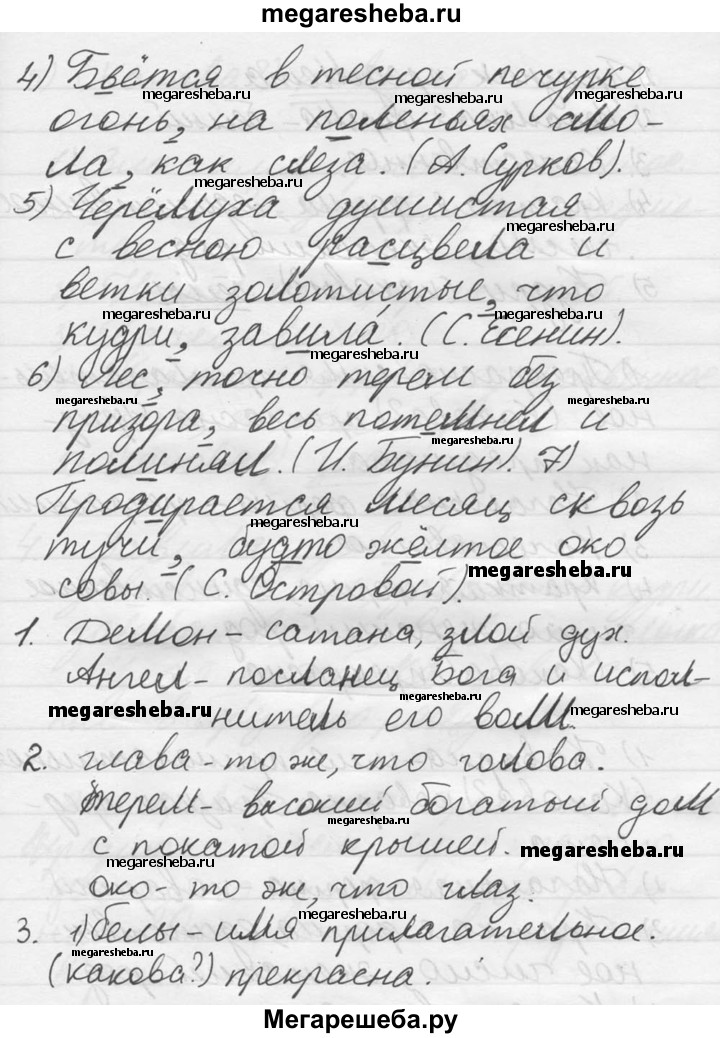 megaresheba.ru
4) Бьётся в тесной печурке
megaresheba.ru megaresheba.ru megaresheba.ru
огонь, на поленьях смо-
ла, как слеза. (А. Сурков).
megaresheba.ru
5) Черёмуха душистая
megaresheba.ru
с весною расцвела и
ветки золотистые, что
megaresheba.ru megaresheba.ru
кудри, завила. (С. Есенин).
megaresheba.ru
6) Лес, точно терем без
megaresheba.ru megaresheba.ru
призора, весь потемнел и
megaresheba.ru
полинял. (И. Бунин). 7)
Продирается месяц сквозь
megaresheba.ru
тучи, будто жёлтое око
megaresheba.ru
совы. (С. Островой).
1. Демон - сатана, злой дух.
Ангел - посланец Бога и испол-
megaresheba.ru megaresheba.ru megaresheba.ru
нитель его воли.
2. глава - то же, что голова.
megaresheba.ru
терем - высокий богатый дом
с покатой крышей.
megaresheba.ru megaresheba.ru
око - то же, что глаз.
megaresheba.ru
3. 1) белы - имя прилагательное.
megaresheba.ru megaresheba.ru
(какова?) прекрасна.
Мегарешеба.ру